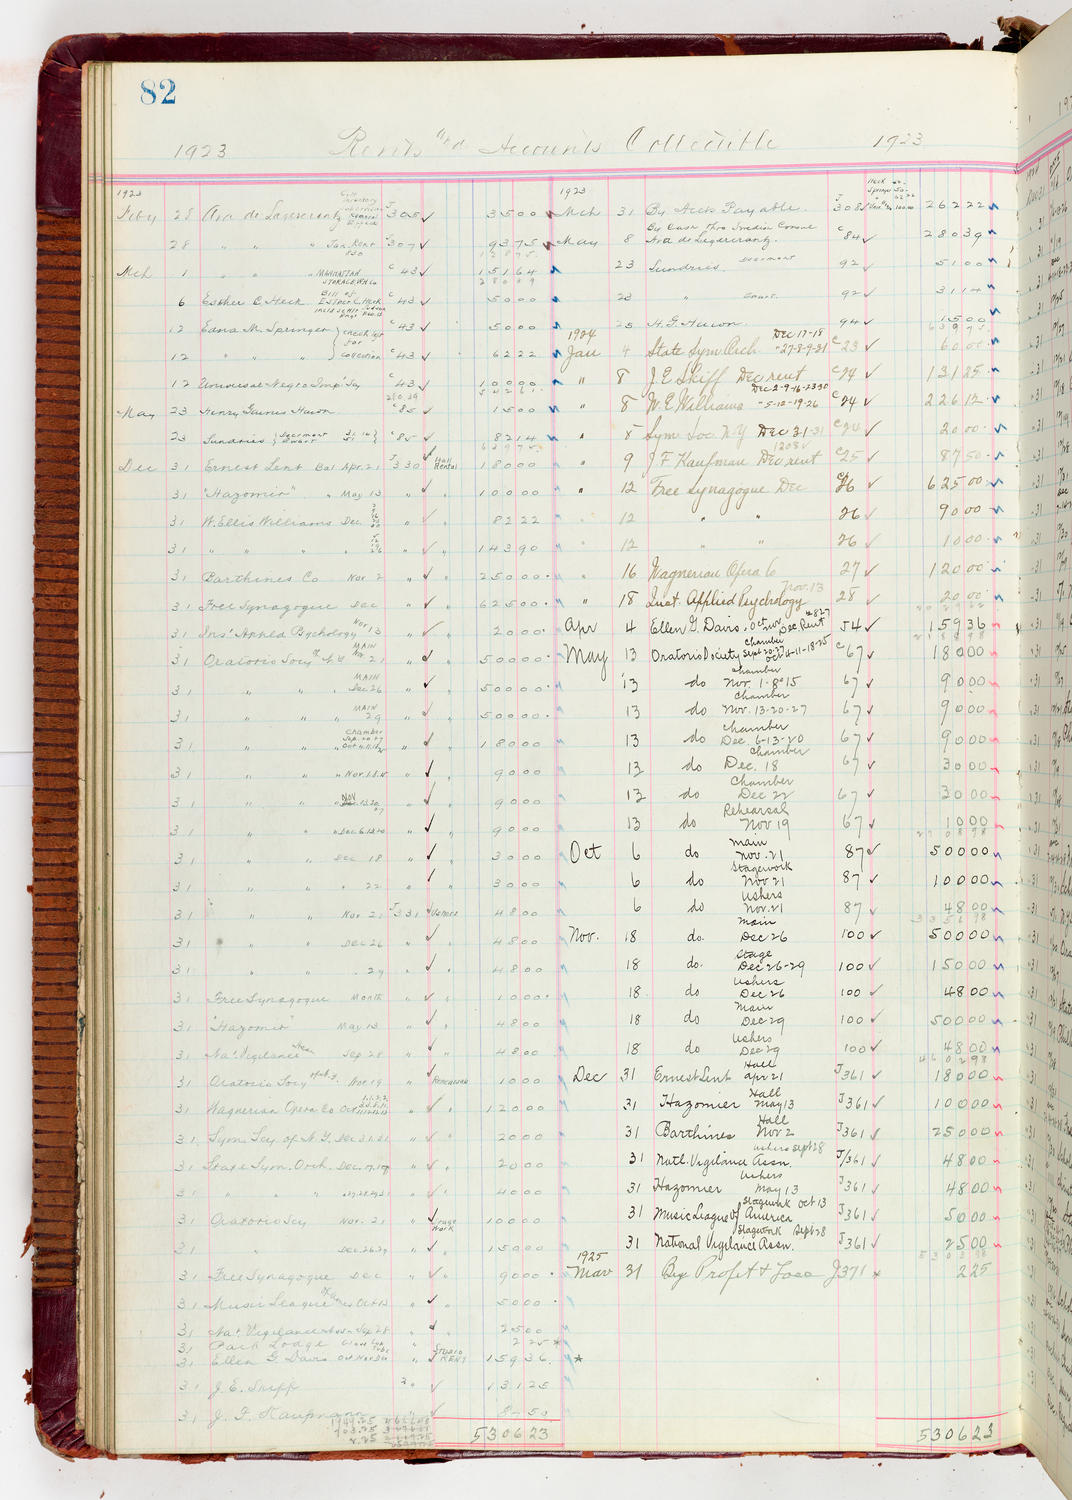 82
1923 Rents and Accounts Collectible 1923
1923
Feby 28 Ana de Lauserantz J 305 ✓ 35 00
28 " " " Jan. Rent 307 ✓ 93 75
128 75
Mch 1 " " " MANHATTAN STORAGE C 43 ✓ 151 64
280 39
6 Esther C. Heck Bill of Esther C. Heck C 43 ✓ 50 00
12 Edna M. Springer check for C 43 ✓ 50 00
12 " " " Collection C 43 ✓ 62 22
12 Universal Negro Imp' Scy C 43 ✓ 100 00
May 23 Henry Gaines Hawn C 85 ✓ 15 00
23 Sundries C 85 ✓ 82 14
639 75
Dec 31 Ernest Lent Bal Apr. 21 J 330 ✓ Hall Rental 180 00
31 "Hazomir" " May 13 " ✓ " 100 00
31 W. Ellis Williams Dec. " ✓ " 82 22
31 " " " " " ✓ " 143 90
31 Barthines Co Nov. 2 " ✓ " 250 00
31 Free Synagogue Dec " ✓ " 625 00
31 Ins' Applied Psychology Nov 13 " ✓ " 20 00
31 Oratorio Socy of N.Y. MAIN Nov. 21 " ✓ " 500 00
31 " " " MAIN Dec 26 ✓ 500 00
31 " " " MAIN 29 " ✓ " 500 00
31 " " " Chamber Sep. 20.27 Oct 4.11.18.25 " ✓ " 180 00
31 " " " Nov. 1.8.15 " ✓ 90 00
31 " " " NOV 13.20 27 " ✓ 90 00
31 " " " Dec 6.13.20 ✓ " 90 00
31 " " Dec 18 " ✓ " 30 00
31 " " " 22 ✓ " 30 00
31 " " Nov. 21 J 331 ✓ Ushers 48 00
31 " " Dec 26 " ✓ " 48 00
31 " " . 29 " ✓ " 48 00
31 Free Synagogue Month " ✓ " 10 00
31 "Hazomir" May 13 " ✓ " 48 00
31 Na'l Vigilance Assn Sep 28 " ✓ " 48 00
31 Oratorio Socy of N.Y. Nov 19 " ✓ Rehearsal 10 00
31 Wagnerian Opera Co Oct " ✓ " 120 00
31 Sym. Scy. of N.Y. Dec 21.31 " ✓ " 20 00
31 State Sym. Orch. Dec. 17.18 " ✓ " 20 00
31 " " " " 27.28.29.31 " ✓ " 40 00
31 Oratorio Scy Nov. 21 " ✓ Stage Work 100 00
31 " Dec. 26.29 " ✓ " 150 00
31 Free Synagogue Dec " ✓ " 90 00
31 Music League of Am Oct 13 " ✓ " 50 00
31 Na'l Vigilance Assn Sep 28 " ✓ " 25 00
31 Park Lodge " 2 25 *
31 Ellen G Davis Oct Nov Dec " ✓ STUDIO RENT 159 36 *
31 J. E. Skiff " ✓ 131 25
31 J. F. Kaufmann " ✓ 87 50
5306 23
1923
Mch 31 By Accts Payable. J 308 ✓ 262 22
May 8 By Cash thro Swedish Consul C 84 ✓ 280 39
23 Sundries. Deermont 92 ✓ 51 00
23 " 92 ✓ 31 14
25 H. G. Hawn. 94 ✓ 15 00
639 75
1924
Jan 4 State Sym Orch. Dec 17-18 -27-8-9-31 C 23 ✓ 60 00
" 8 J. E. Skiff Dec rent C 24 ✓ 131 25
" 8 W. E. Williams Dec 2-9-16-23 30 - 5-12-19-26 C 24 ✓ 226 12
" 8 Sym Soc N.Y Dec 21-31 C 24 ✓ 20 00
9 J F Kaufman Dec rent C 25 ✓ 87 50
" 12 Free Synagogue Dec C 26 ✓ 625 00
" 12 " " 26 ✓ 90 00
" 12 " " 26 ✓ 10 00
" 16 Wagnerian Opera Co 27 ✓ 120 00
" 18 Inst. Applied Psychology Nov. 13 28 ✓ 20 00
Apr 4 Ellen G. Davis. Oct nov Dec. Rent 54 ✓ 159 36
May 13 Oratorio Society Chamber Sept 20-27 Oct 4-11-18-25 C 67 ✓ 180 00
13 do Chamber Nov. 1-8-15 67 ✓ 90 00
13 do Chamber Nov. 13-20-27 67 ✓ 90 00
13 do Chamber Dec. 6-13-20 67 ✓ 90 00
13 do Chamber Dec. 18 67 ✓ 30 00
13 do Chamber Dec 22 67 ✓ 30 00
13 do Rehearsal Nov 19 67 ✓ 10 00
Oct 6 do Main Nov. 21 87 ✓ 500 00
6 do Stagework Nov 21 87 ✓ 100 00
6 do Ushers Nov. 21 87 ✓ 48 00
Nov. 18 do. Main Dec 26 100 ✓ 500 00
18 do. Stage Dec 26-29 100 ✓ 150 00
18. do Ushers Dec 26 100 ✓ 48 00
18 do Main Dec 29 100 ✓ 500 00
18 do Ushers Dec 29 100 ✓ 48 00
4602 98
Dec 31 Ernest Lent Hall apr 21 J 361 ✓ 180 00
31 Hazomier Hall May 13 J 361 ✓ 100 00
31 Barthines Hall Nov 2 J 361 ✓ 250 00
31 Natl. Vigilance Assn. Ushers Sept 28 J/361 ✓ 48 00
31 Hazomier Ushers May 13 J 361 ✓ 48 00
31 Music League of America Stagework Oct 13 J 361 ✓ 50 00
31 National Vigilance Assn. Stagework Sept 28 J 361 ✓ 25 00
5303 98
1925
Mar 31 By Profit & Loss J 371 * 2 25
5306 23